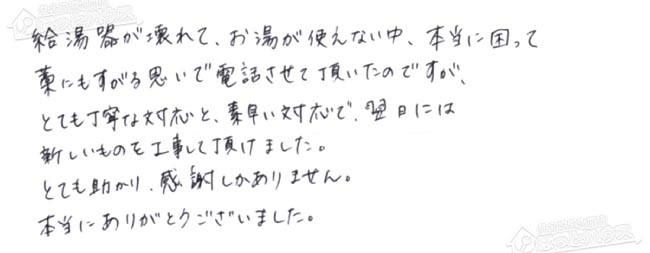 給湯器が壊れて、お湯が使えない中、本当に困って
藁にもすがる思いで電話させて頂いたのですが、
とても丁寧な対応と、素早い対応で、翌日には
新しいものを工事して頂けました。
とても助かり、感謝しかありません。
本当にありがとうございました。